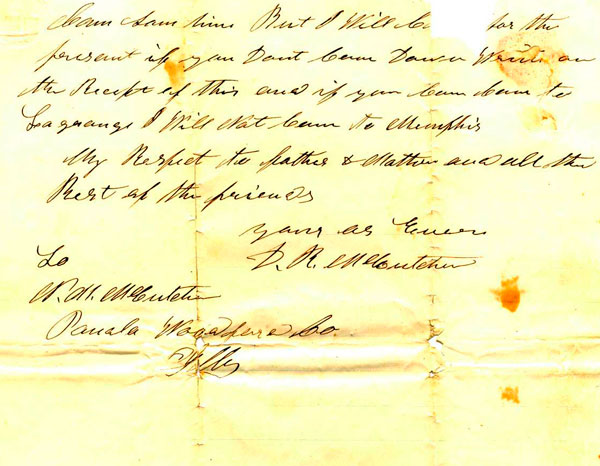 Cam some time But I Will for the
present if you Dont Cam Down Write on
the Recept of this and if you Cam Cam to
Lagrange I Will Not Cam to Memphis
My Respect to father & Mother and all the
Rest of the friends
yours as Ever
To D. R. McCutchen
McCutchen
Panala Woodford Co.
Ills